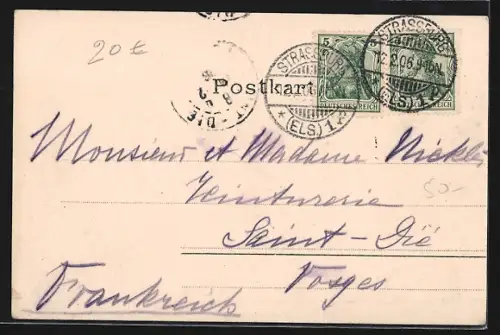 20 €
STRASSBURG
(ELS) 1 P
5
5
DEUTSCHES REICH
STRASSBURG
12.2.06.
(ELS) 1 P
REICH
Postkarte
DIE
Monsieur et Madame
50-
Teinturerie
Saint-Dié
Vosges
Frankreich